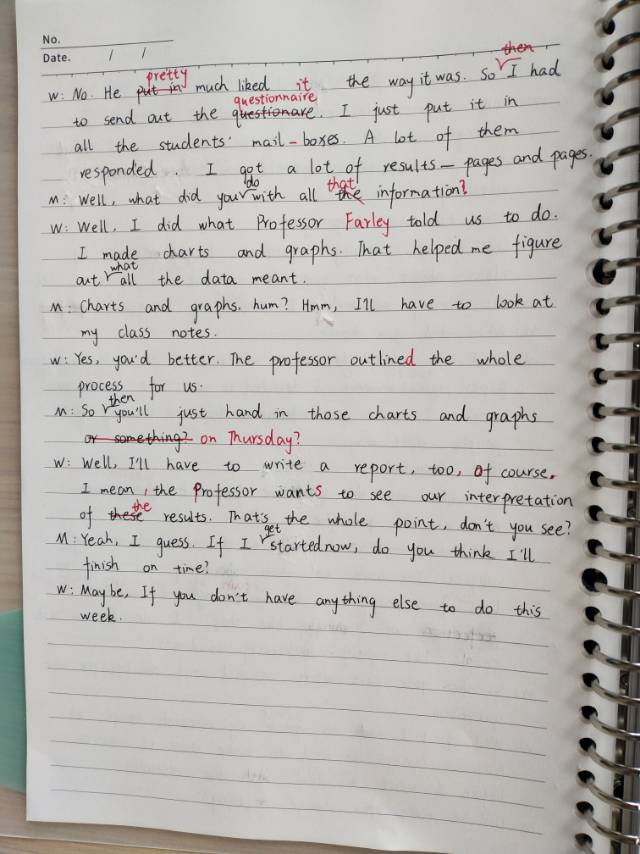 No.
Date. / /
then
pretty
W: No. He put in much liked it the way it was. So I had
questionnaire
to send out the questionare. I just put it in
all the students' mail-boxes. A lot of them
responded. I got a lot of results — pages and pages.
do that
M: Well, what did you with all the information?
W: Well, I did what Professor Farley told us to do.
I made charts and graphs. That helped me figure
what
out all the data meant.
M: Charts and graphs. hum? Hmm, I'll have to look at
my class notes.
W: Yes, you'd better. The professor outlined the whole
process for us.
then
M: So you'll just hand in those charts and graphs
or something? on Thursday?
W: Well, I'll have to write a report, too, Of course.
I mean, the Professor wants to see our interpretation
the
of these results. That's the whole point, don't you see?
get
M: Yeah, I guess. If I started now, do you think I'll
finish on time?
W: Maybe, If you don't have anything else to do this
week.